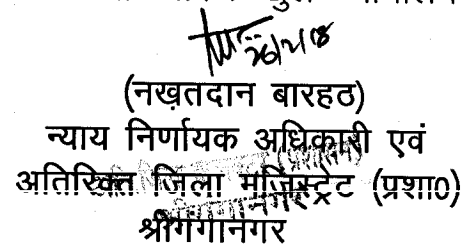 26/2/18
(नख़तदान बारहठ)
न्याय निर्णायक अधिकारी एवं
अतिरिक्त जिला मजिस्ट्रेट (प्रशा0)
श्रीगंगानगर